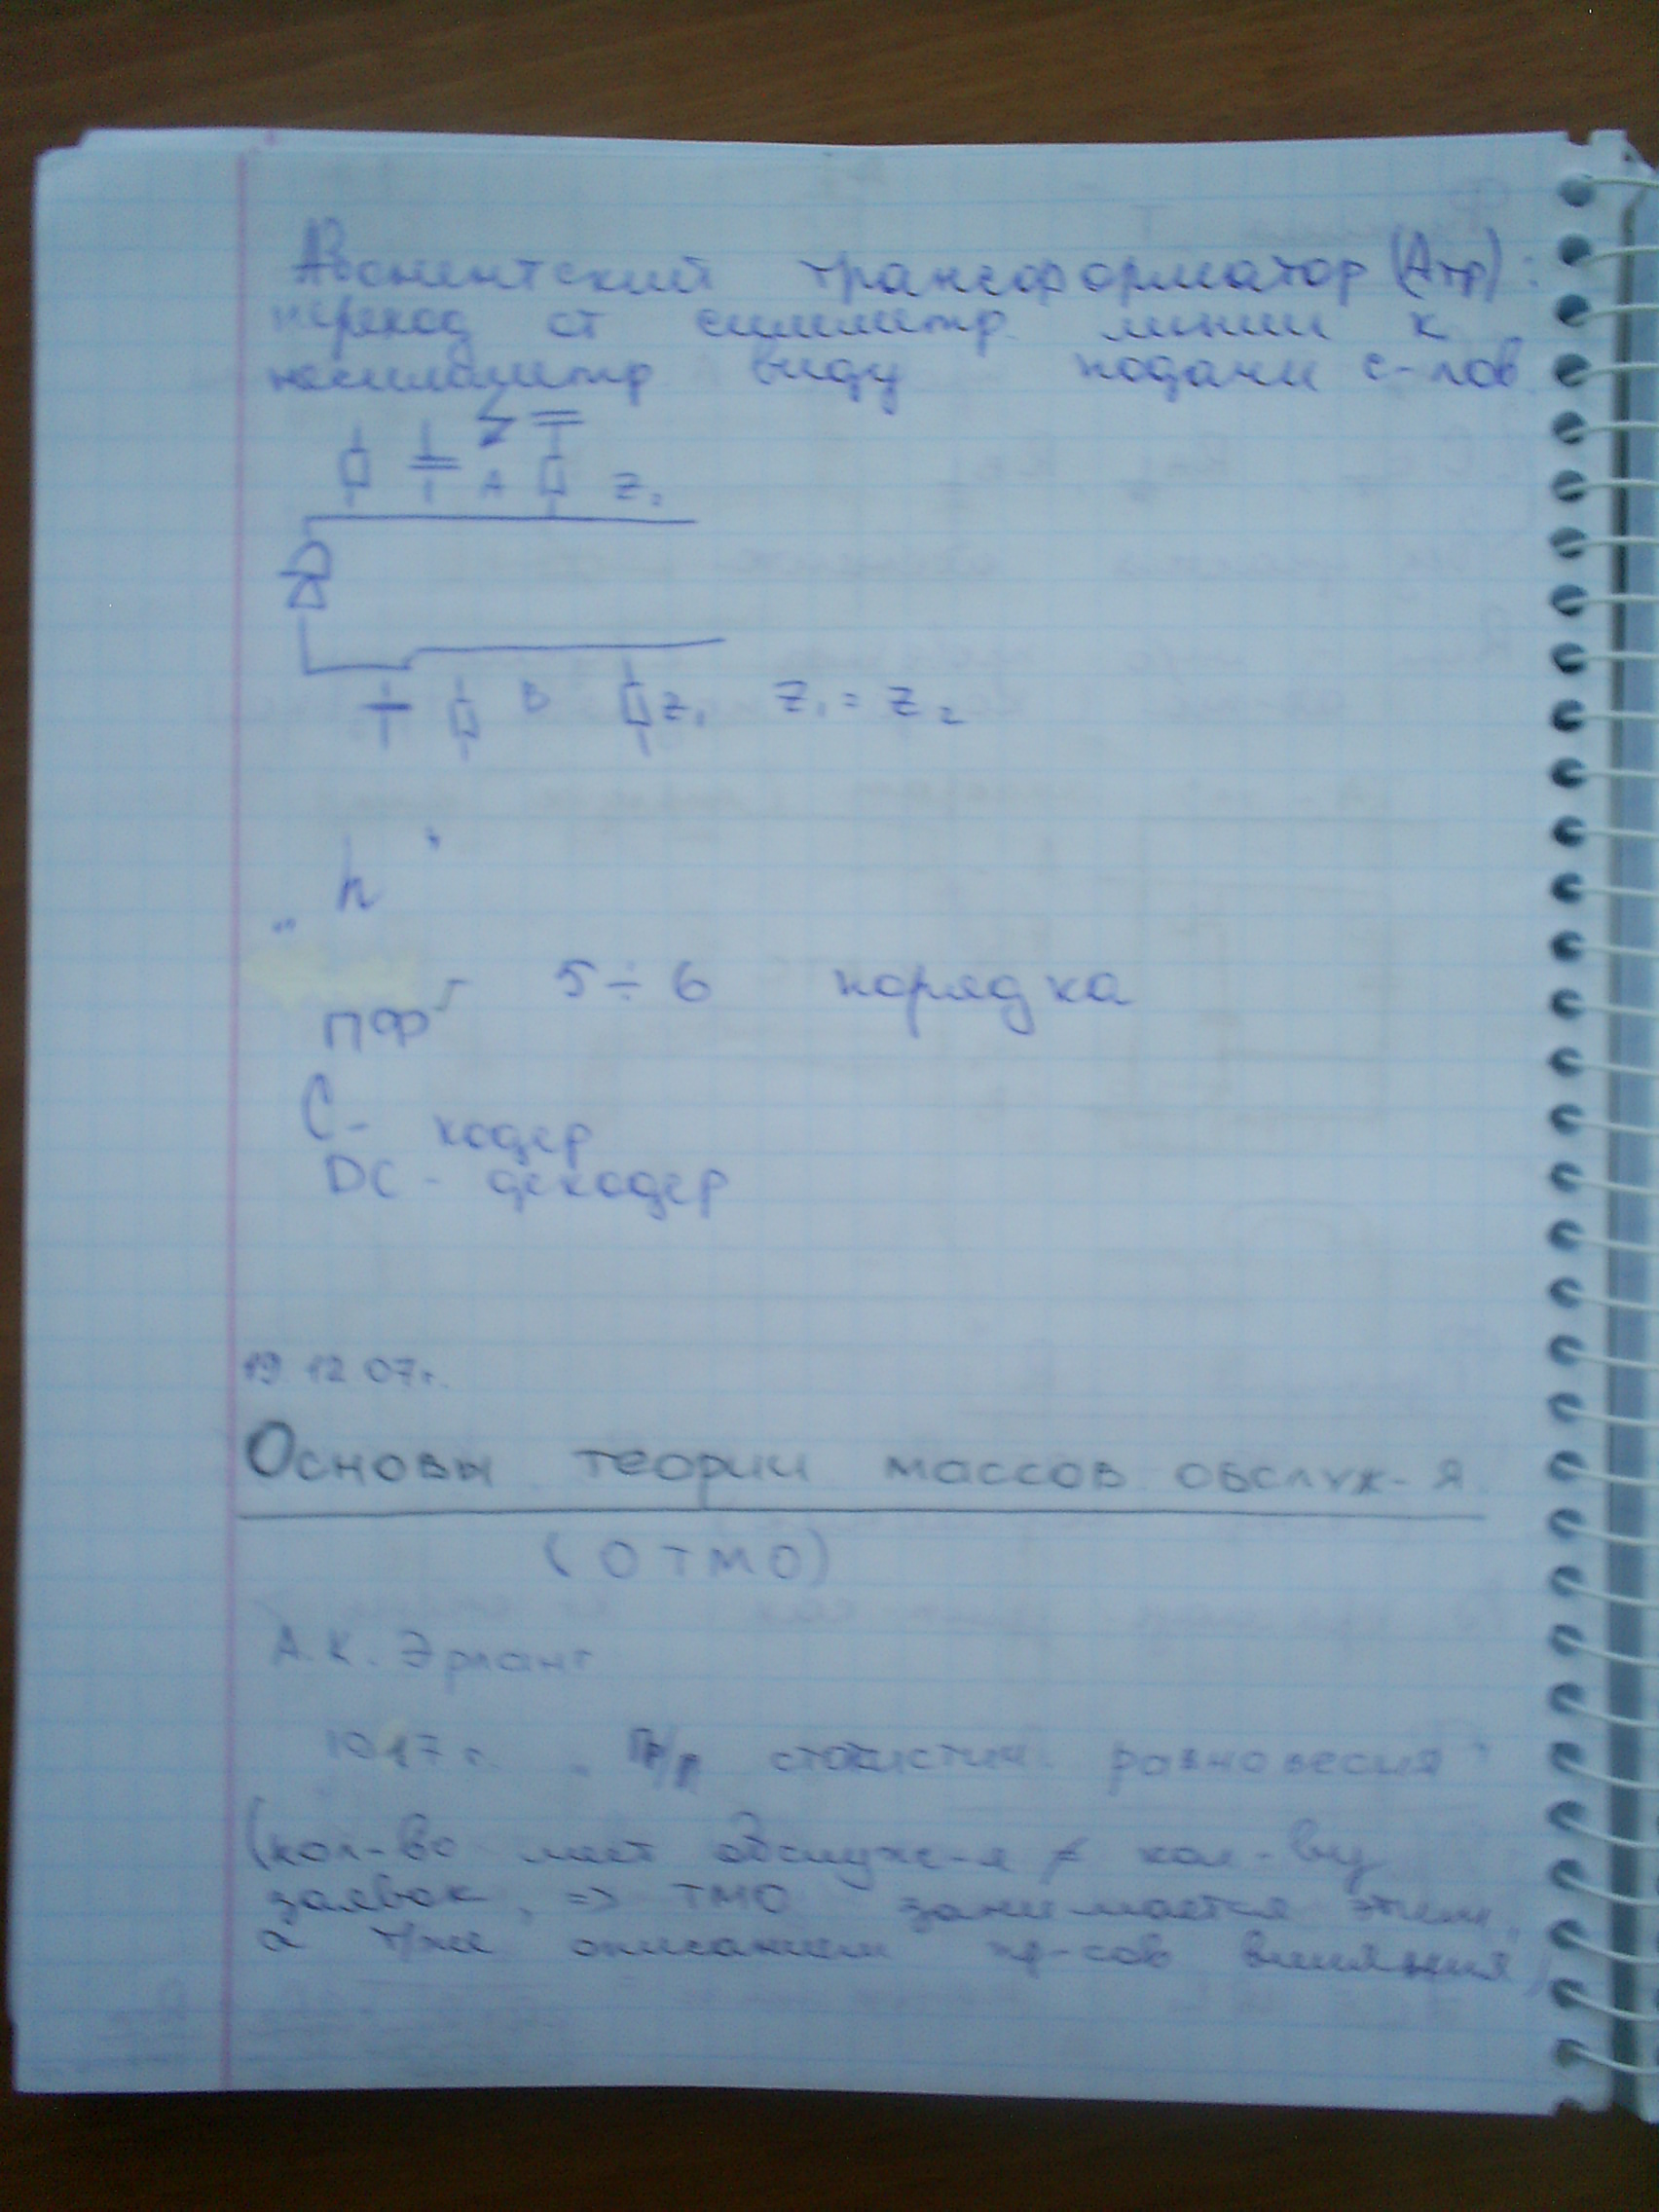 Абонентский трансформатор (Атр):
переход от симметр. линии к
несимметр виду подачи с-лов
A Z₂
B Z₁ Z₁ = Z₂
„ h "
ПФ - 5 ÷ 6 порядка
C - кодер
DC - декодер
19.12.07г.
Основы теории массов. обслуж-я.
(ОТМО)
А.К. Эрланг
1917г. „ статистич. равновесия"
(кол-во мест обслуж-я ≠ кол-ву
заявок, => ТМО занимается этим,
а т/же описанием пр-сов